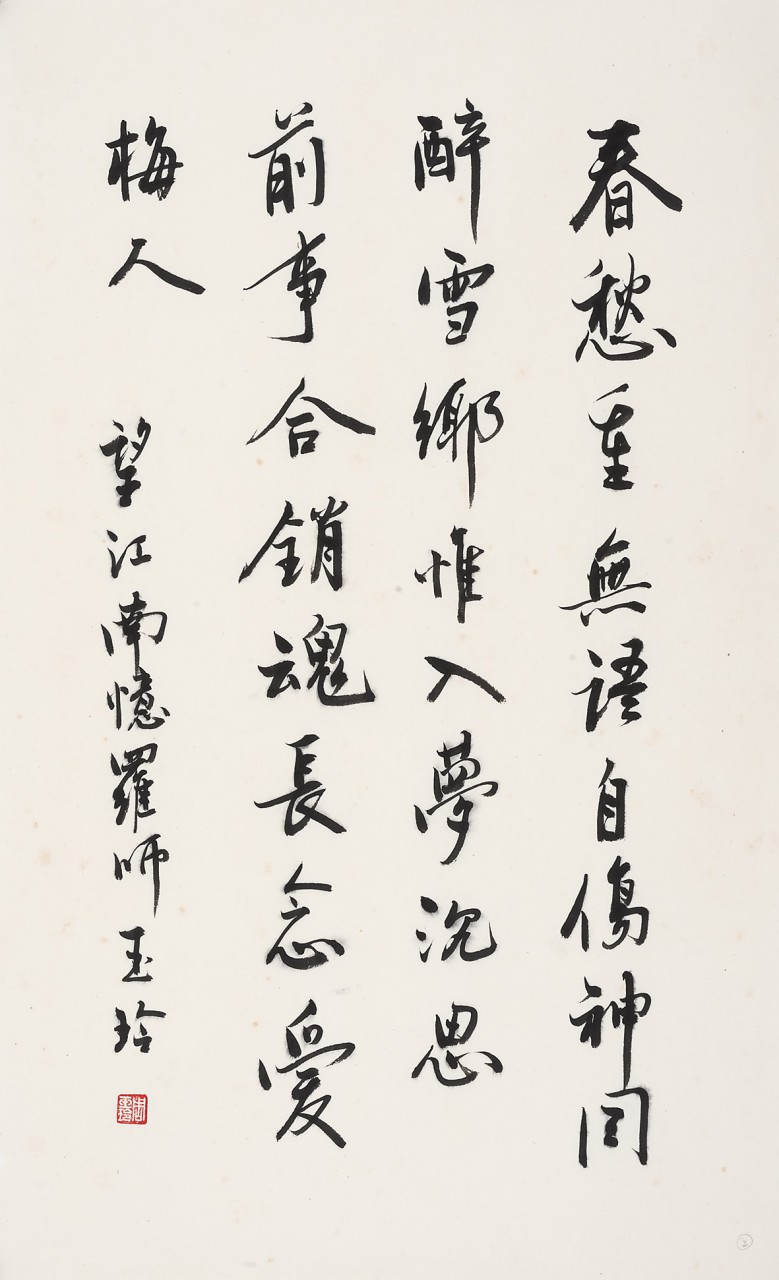 春愁重無語自傷神同
醉雪鄉惟入夢沉思
前事合銷魂長念愛
梅人
望江南憶羅師玉玲